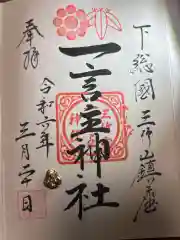 下総國
三竹山鎮座
一言主神社
奉拝
令和六年
三月二十日